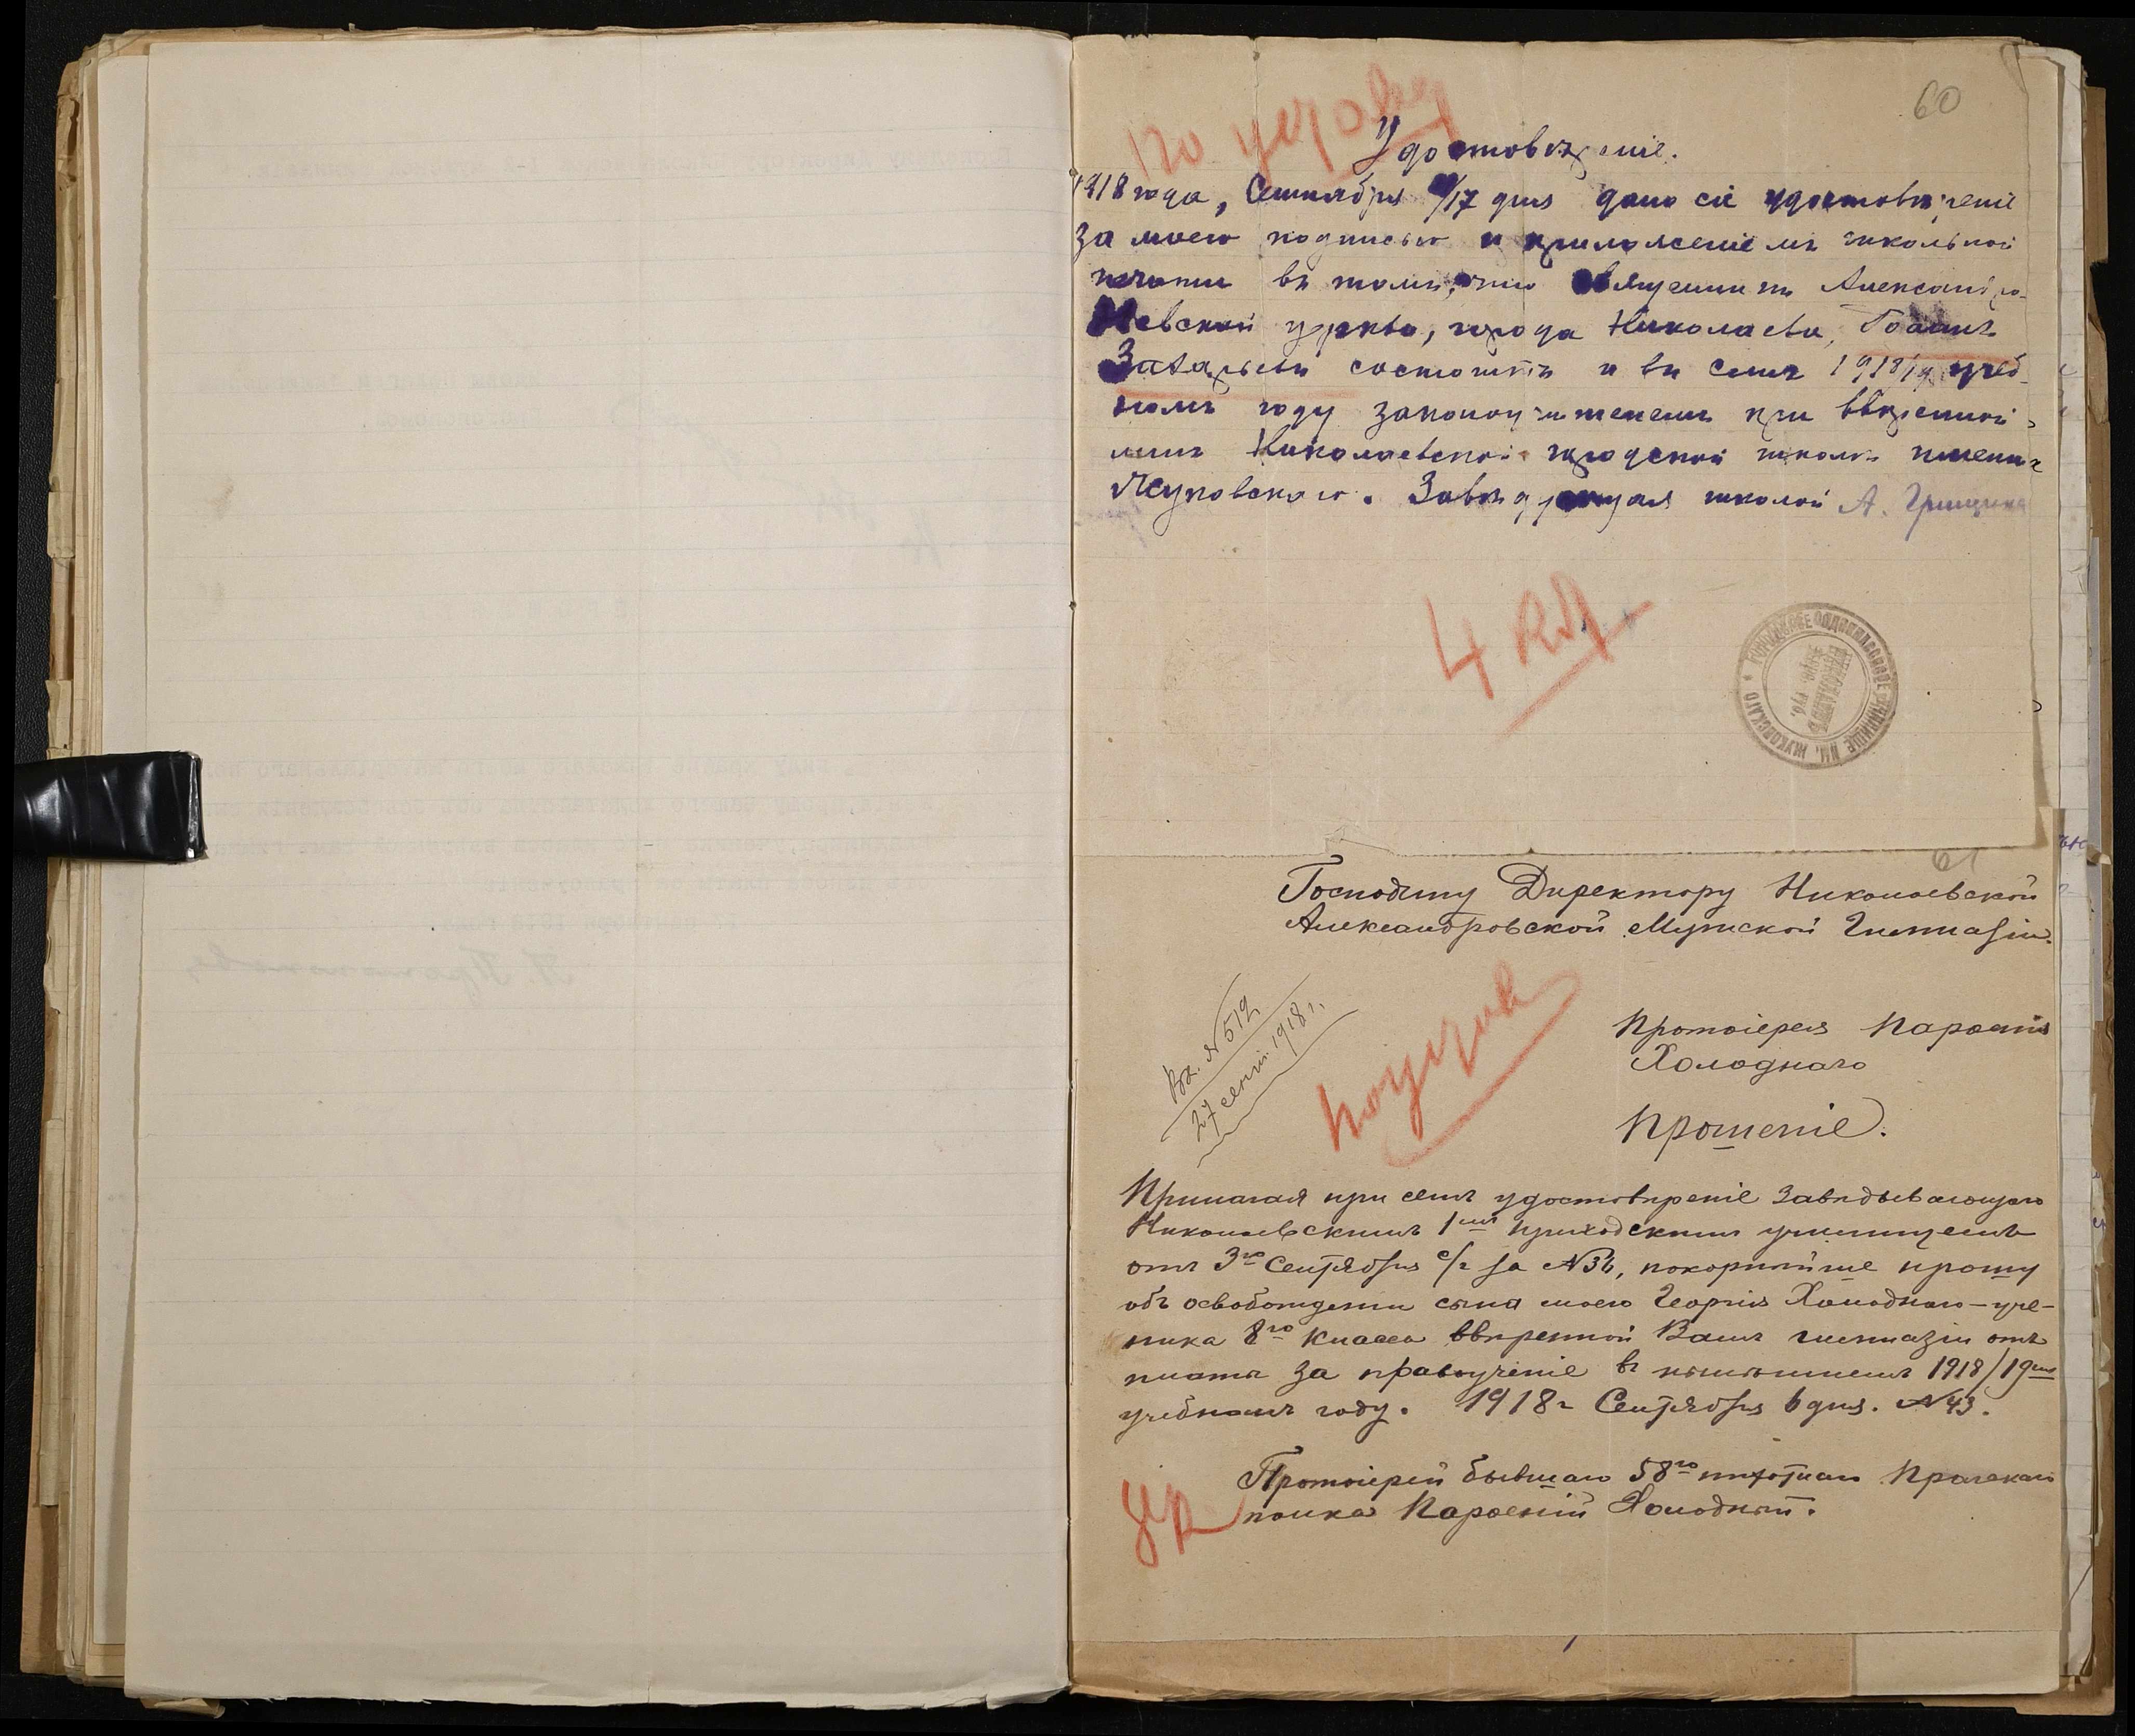 60
Удостовѣреніе.
1918 года, Сентября /17 дня дано сіе удостовѣреніе
за моею подписью и приложеніемъ школьной
печати въ томъ, что священникъ Александро-
Невской церкви, города Николаева, Іоаннъ
Захарьевъ состоитъ и въ семъ 1918/19 учеб-
номъ году законоучителемъ при ввѣренной
мнѣ Николаевской городской школѣ имени
Жуковскаго. Завѣдующая школой А. Грищенко
4 кл.
ГОРОДСКОЕ ПРИХОДСКОЕ УЧИЛИЩЕ ИМ. ЖУКОВСКАГО
61
Господину Директору Николаевской
Александровской Мужской Гимназіи.
Вх. № 519
27 сент. 1918 г.
Протоіерея Парѳенія
Холоднаго
Прошеніе.
Прилагая при семъ удостовѣреніе Завѣдывающаго
Николаевскимъ 1мъ приходскимъ училищемъ
отъ 3го Сентября с/г за №36, покорнѣйше прошу
объ освобожденіи сына моего Георгія Холоднаго - уче-
ника 8го класса ввѣренной Вамъ гимназіи отъ
платы за правоученіе въ нынѣшнемъ 1918/19мъ
учебномъ году. 1918 г Сентября 6 дня. №43.
Протоіерей бывшаго 58го пѣхотнаго Прагскаго
полка Парѳеній Холодный.